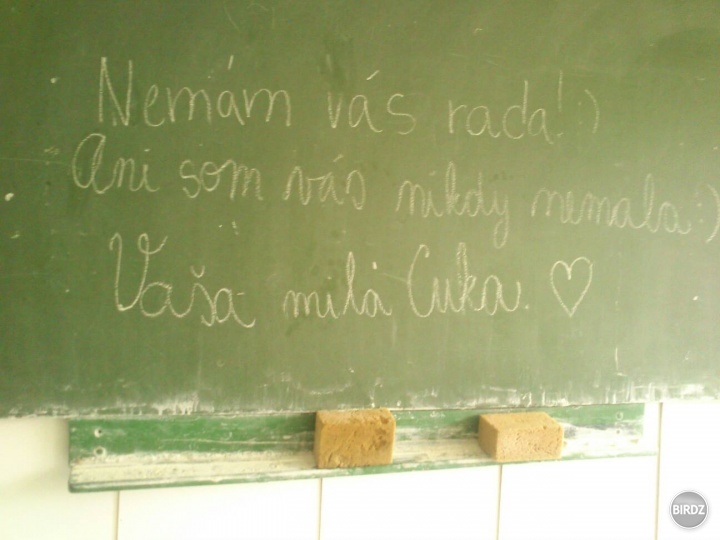 Nemám vás rada! :)
Ani som vás nikdy nemala :)
Vaša milá Cuka. ♡
BIRDZ